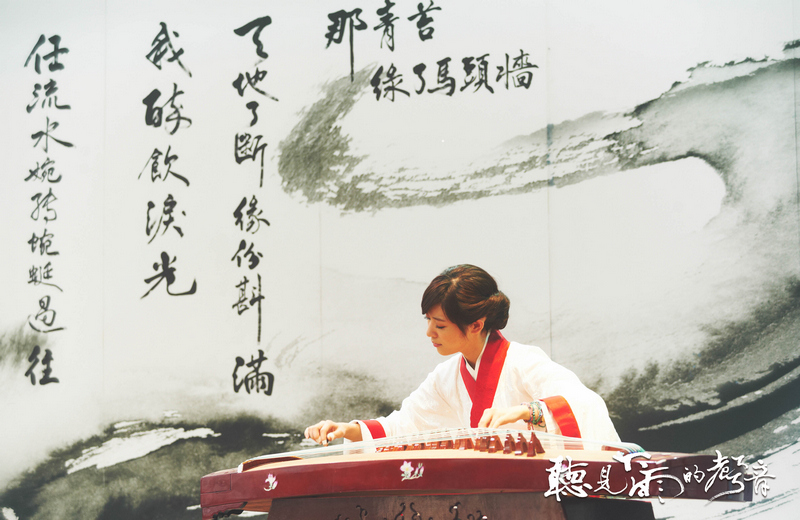 那青苔
綠了馬頭牆
天地了斷 緣份斟滿
我醉飲淚光
任流水婉轉蜿蜒過往
聽見下雨的聲音